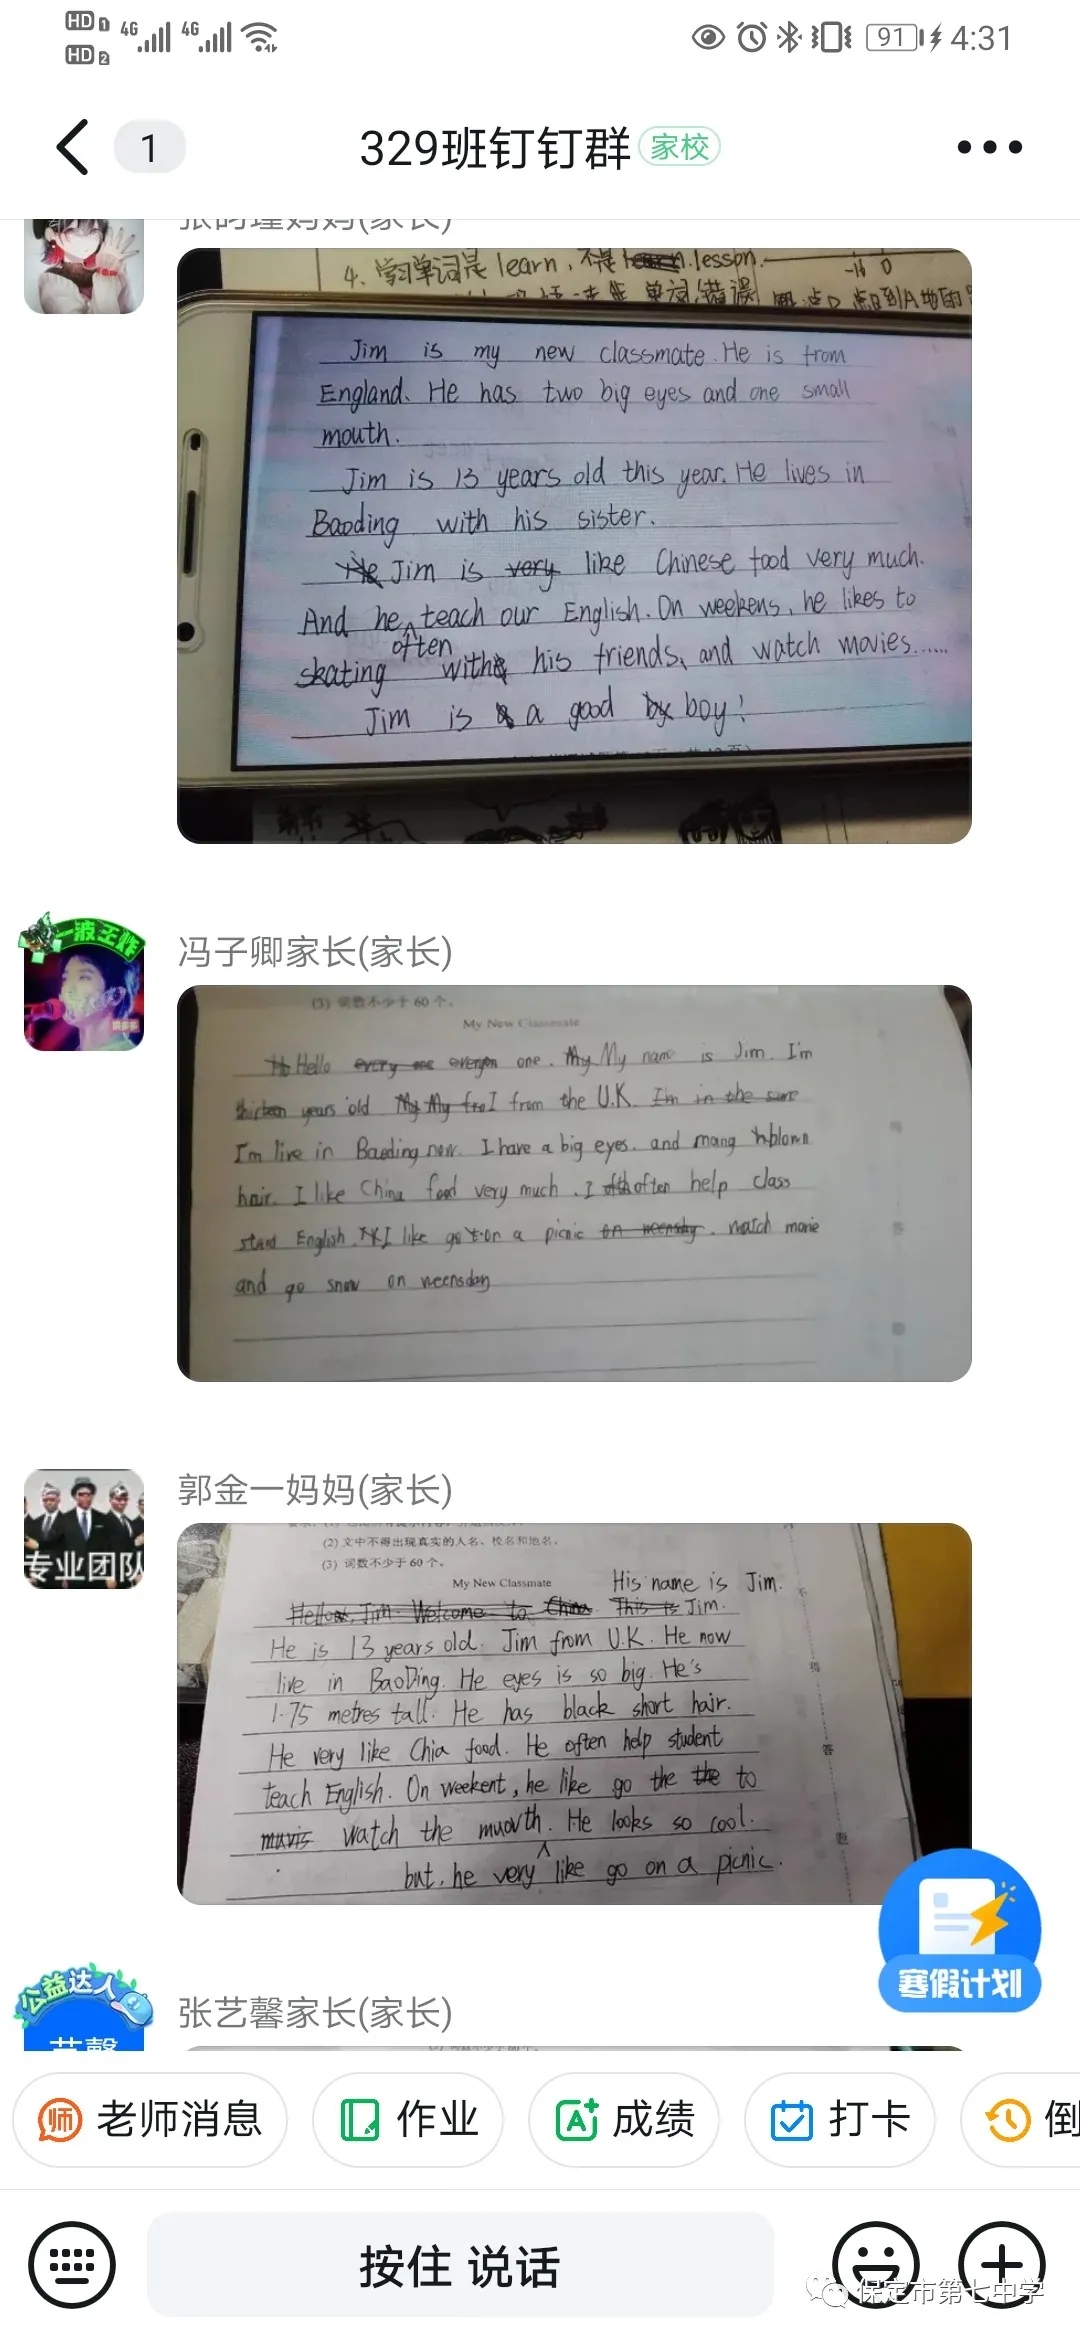 HD 1 4G 4G
HD 2
91 4:31
1
329班钉钉群 家校
4. 学习单词是 learn, 不是 lesson.
-16 0
Jim is my new classmate. He is from
England. He has two big eyes and one small
mouth.
Jim is 13 years old this year. He lives in
Baoding with his sister.
Jim is very like Chinese food very much.
And he teach our English. On weekens, he likes to
often
skating with his friends, and watch movies......
Jim is a good boy!
一波王炸
冯子卿家长(家长)
(3) 词数不少于 60 个。
My New Classmate
Hello one. My name is Jim. I'm
thirteen years old I from the U.K. I'm in the same
I'm live in Baoding now. I have a big eyes. and
hair. I like China food very much. I often help class
English. I like go on a picnic watch movie
and go snow on weensday
专业团队
郭金一妈妈(家长)
(2) 文中不得出现真实的人名、校名和地名。
(3) 词数不少于 60 个。
My New Classmate His name is Jim.
Hello, Jim. Welcome to China. This is Jim.
He is 13 years old. Jim from U.K. He now
live in BaoDing. He eyes is so big. He's
1.75 metres tall. He has black short hair.
He very like Chia food. He often help student
teach English. On weekent, he like go the the to
watch the He looks so cool.
but, he very like go on a picnic.
答
题
寒假计划
公益达人
艺馨
张艺馨家长(家长)
师 老师消息 作业 A+ 成绩 打卡 倒
按住 说话
保定市第七中学